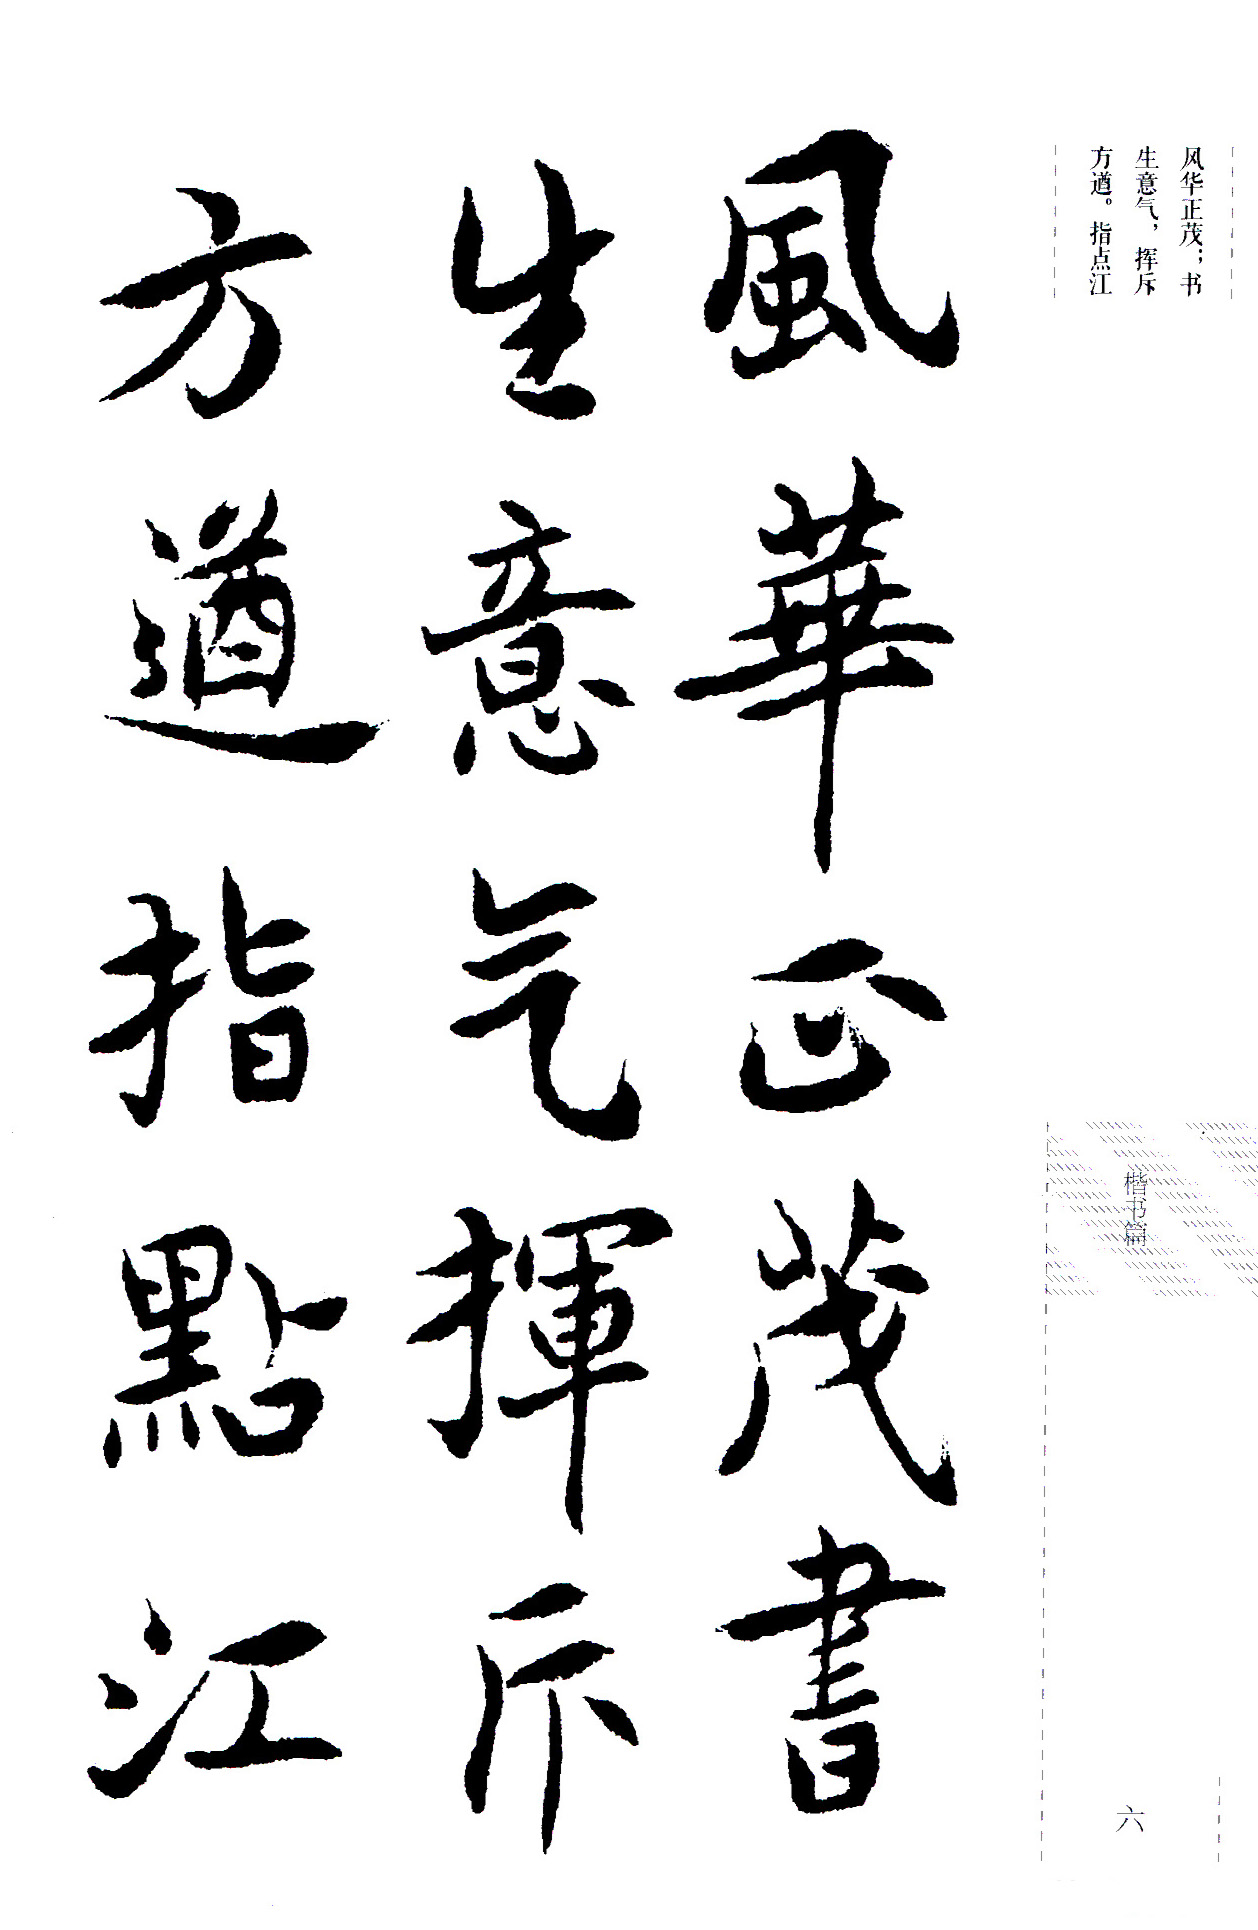 风华正茂；书
生意气，挥斥
方遒。指点江
風華正茂書
生意气揮斥
方遒指點江
楷书篇
六